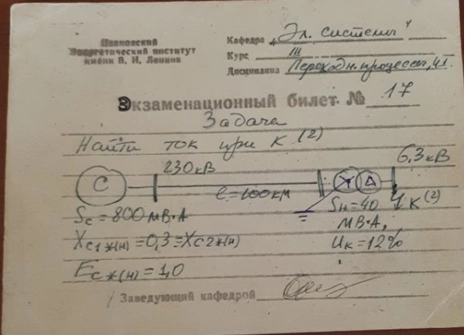 Ивановский
Энергетический институт
имени В. И. Ленина
Кафедра „Эл. системы"
Курс III
Дисциплина Переходн. процессы, ч1.
Экзаменационный билет № 17
Задача
Найти ток при К (2)
230кВ
6,3кВ
С
l=100км
Y Δ
Sс=800МВ·А
Sн=40
МВ·А,
К(2)
Xс1*(н)=0,3=Xс2*(н)
Uк=12%
Eс*(н)=1,0
Заведующий кафедрой